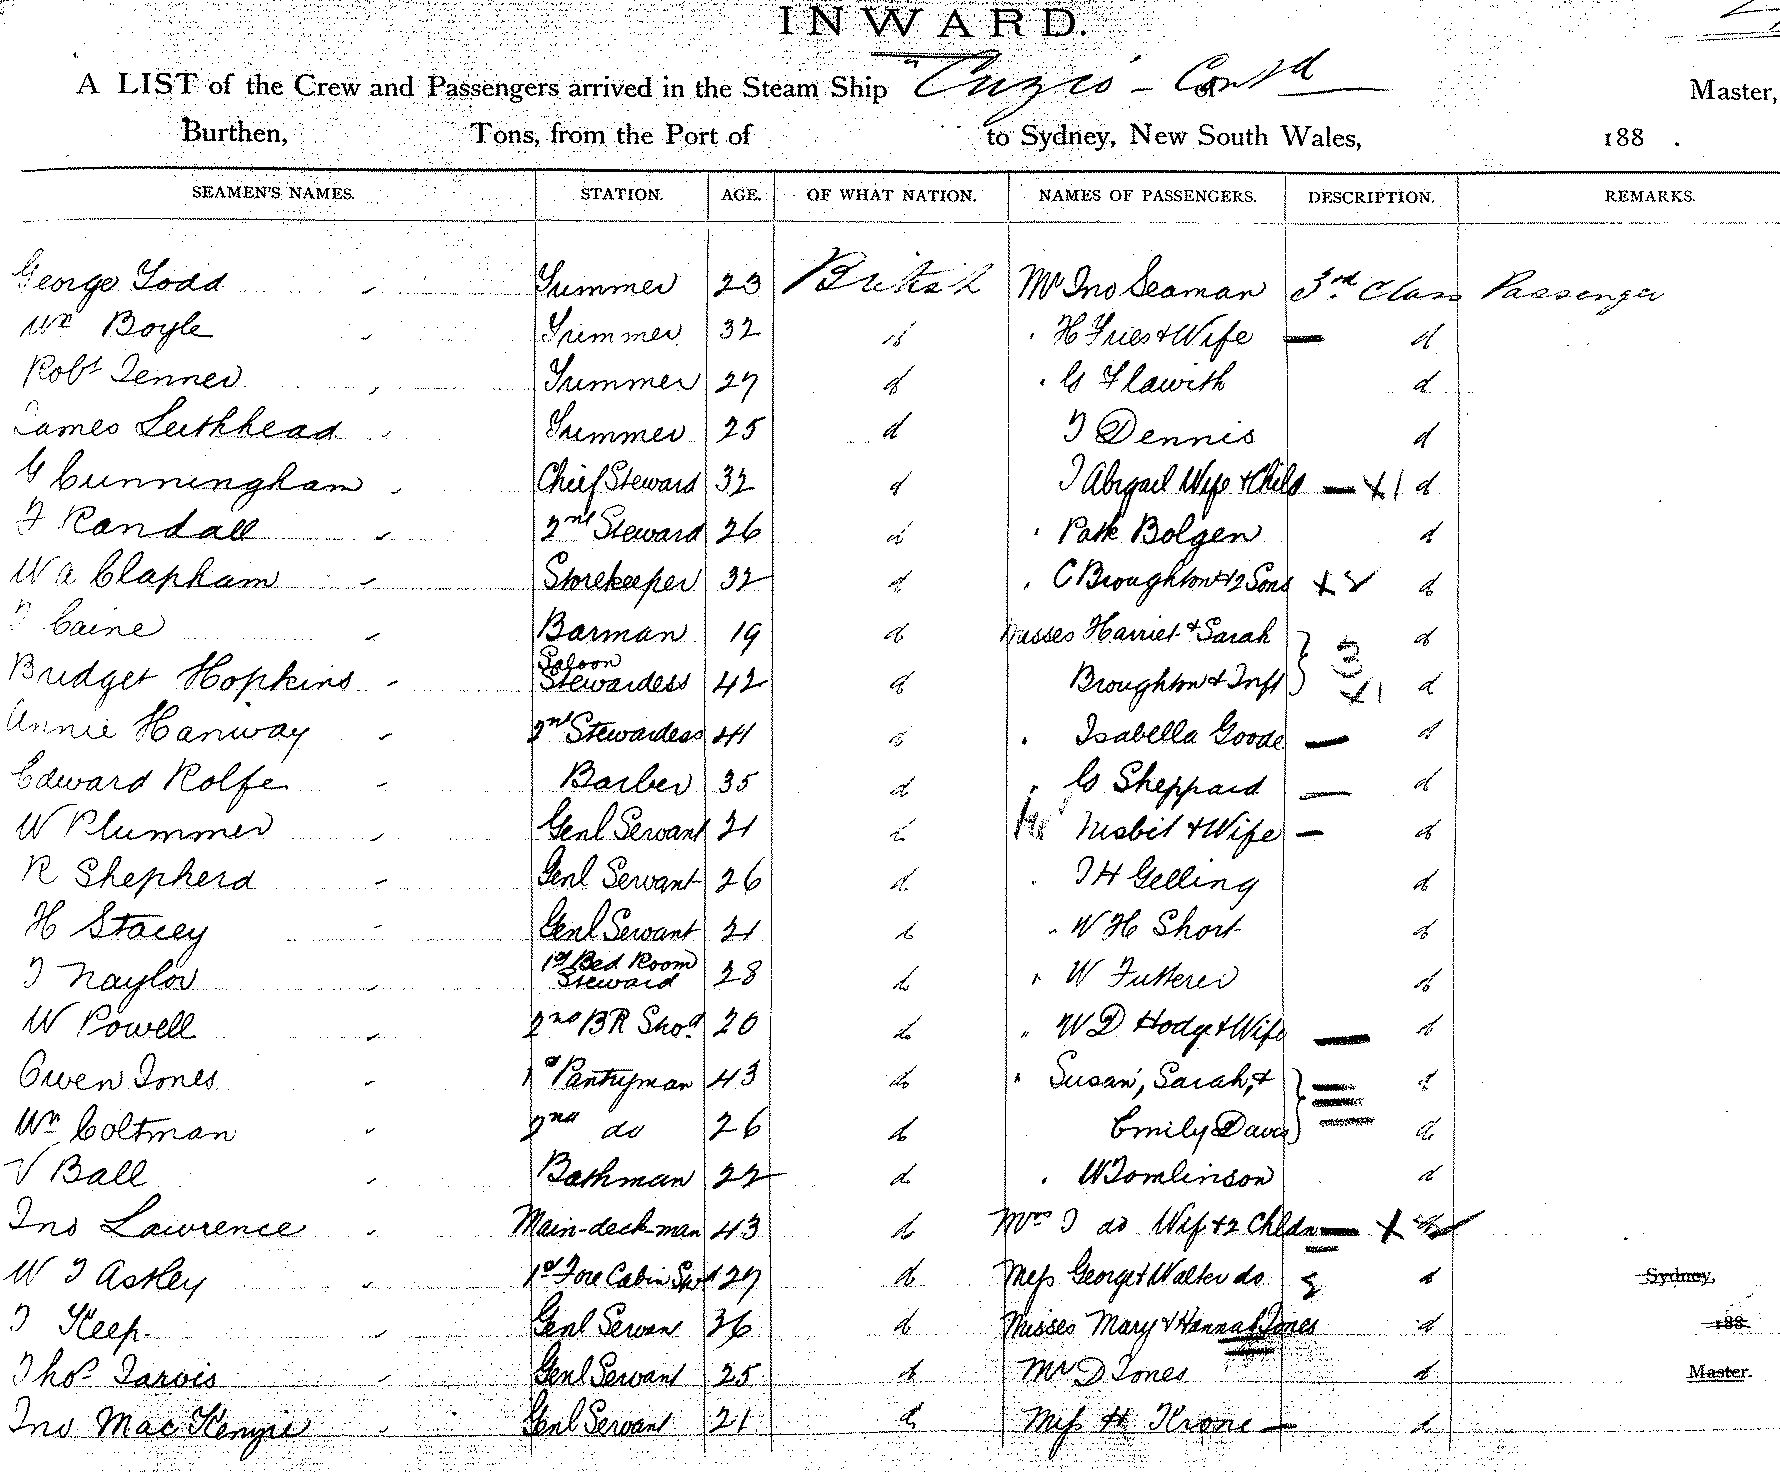 INWARD.
A LIST of the Crew and Passengers arrived in the Steam Ship "Cuzco" - Contd Master,
Burthen, Tons, from the Port of to Sydney, New South Wales, 188 .
SEAMEN'S NAMES. STATION. AGE. OF WHAT NATION. NAMES OF PASSENGERS. DESCRIPTION. REMARKS.
George Todd Trimmer 23 British Mr Jno Seaman 3rd Class Passenger
Wm Boyle Trimmer 32 d " H Fries & Wife — d
Robt Jenner Trimmer 27 d " G Flawith d
James Leithhead Trimmer 25 d J Dennis d
G Cunningham Chief Steward 32 d J Abigail Wife & Child — X1 d
F Randall 2nd Steward 26 d " Patk Bolgen d
W A Clapham Storekeeper 32 d " C Broughton & 2 Sons X2 d
Caine Barman 19 d Misses Harriet & Sarah d
Bridget Hopkins Saloon Stewardess 42 d Broughton & Inft X1 d
Annie Hanway 2nd Stewardess 41 d " Isabella Goode — d
Edward Rolfe Barber 35 d " G Sheppard — d
W Plummer Genl Servant 21 d Mr Nesbit & Wife — d
R Shepherd Genl Servant 26 d " J H Gelling d
H Stacey Genl Servant 21 d " W H Short d
J Naylor 1st Bed Room Steward 28 d " W Futterer d
W Powell 2nd BR Std 20 d " W D Hodge & Wife — d
Owen Jones 1st Pantryman 43 d " Susan, Sarah, & d
Wm Coltman 2nd do 26 d Emily Davis d
V Ball Bathman 22 d " W Tomlinson d
Jno Lawrence Main-deck-man 43 d Mrs J do Wife & 2 Chldn — X d
W J Astley 1st Fore Cabin Std 27 d Mess George & Walter do d
J Keep Genl Servan 36 d Misses Mary & Hannah Jones d
Thos Jarvis Genl Servant 25 d Mr D Jones d
Jno MacKenzie Genl Servant 21 d Miss H Krone — d
Sydney,
188
Master.